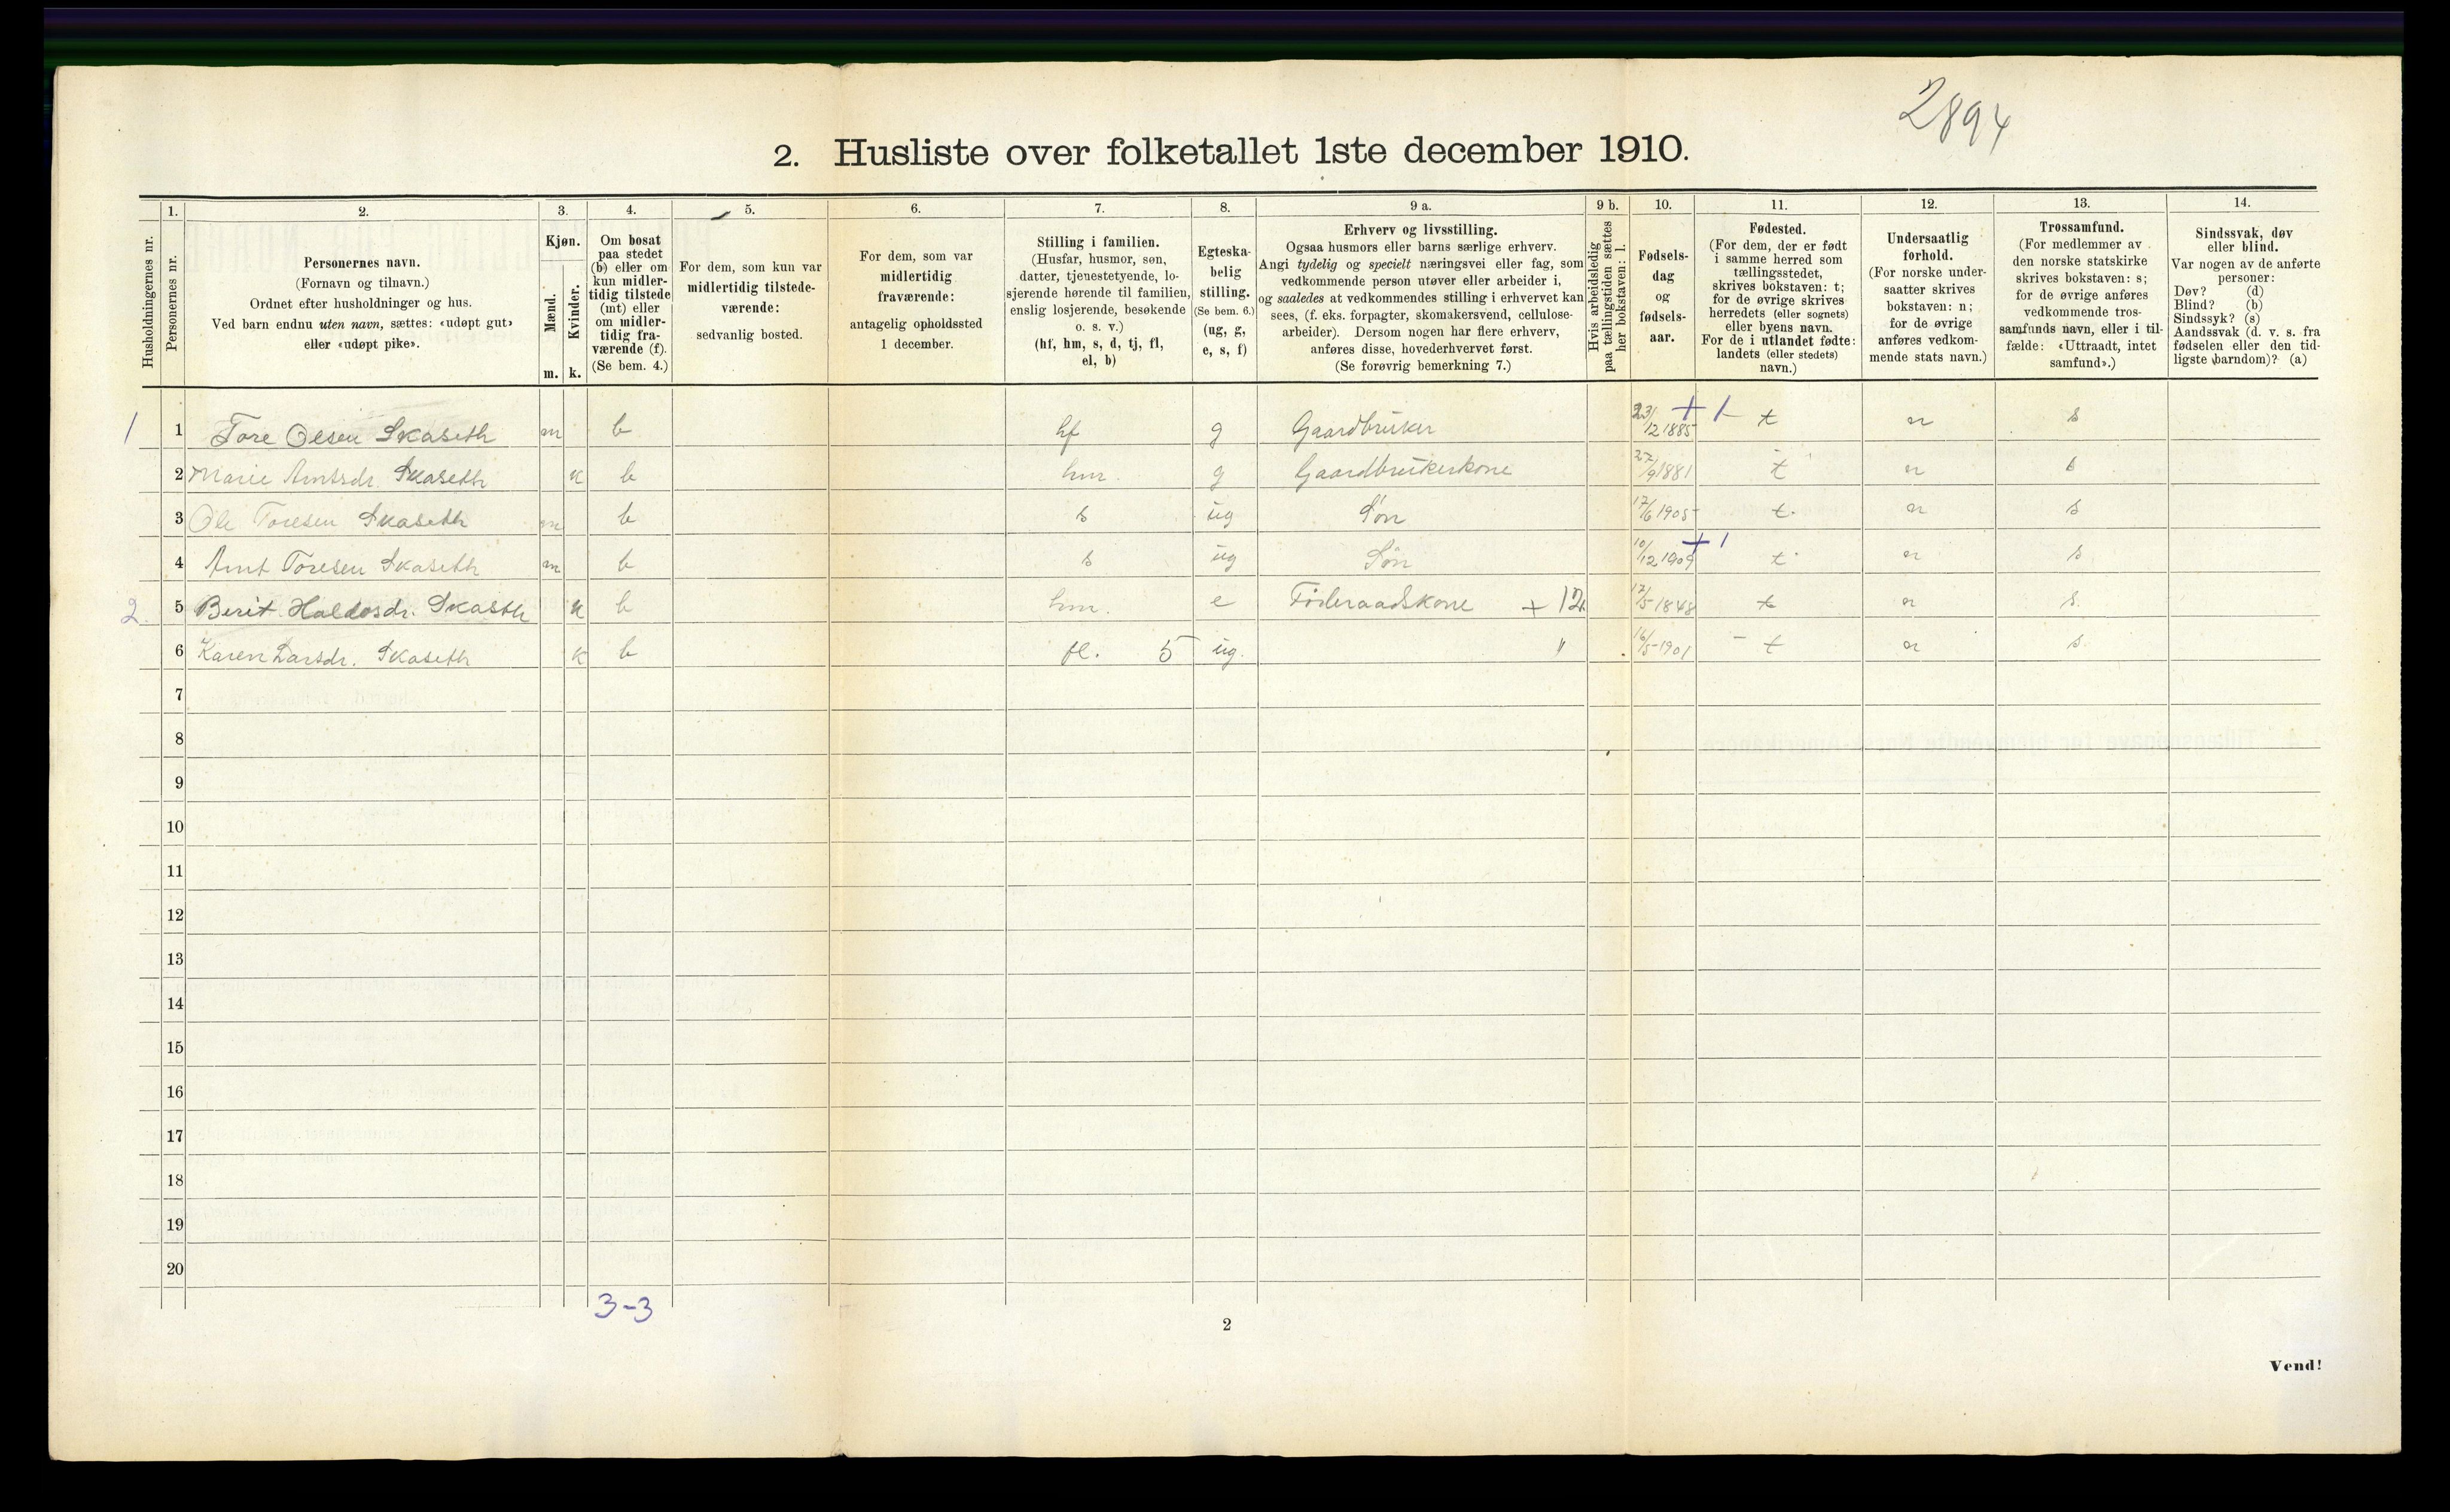 2894
2. Husliste over folketallet 1ste december 1910.
Husholdningernes nr.
1.
Personernes nr.
2.
Personernes navn.
(Fornavn og tilnavn.)
Ordnet efter husholdninger og hus.
Ved barn endnu uten navn, sættes: «udøpt gut»
eller «udøpt pike».
3.
Kjøn.
Mænd.
m.
Kvinder.
k.
4.
Om bosat
paa stedet
(b) eller om
kun midler-
tidig tilstede
(mt) eller
om midler-
tidig fra-
værende (f).
(Se bem. 4.)
5.
For dem, som kun var
midlertidig tilstede-
værende:
sedvanlig bosted.
6.
For dem, som var
midlertidig
fraværende:
antagelig opholdssted
1 december.
7.
Stilling i familien.
(Husfar, husmor, søn,
datter, tjenestetyende, lo-
sjerende hørende til familien,
enslig losjerende, besøkende
o. s. v.)
(hf, hm, s, d, tj, fl,
el, b)
8.
Egteska-
belig
stilling.
(Se bem. 6.)
(ug, g,
e, s, f)
9 a.
Erhverv og livsstilling.
Ogsaa husmors eller barns særlige erhverv.
Angi tydelig og specielt næringsvei eller fag, som
vedkommende person utøver eller arbeider i,
og saaledes at vedkommendes stilling i erhvervet kan
sees, (f. eks. forpagter, skomakersvend, cellulose-
arbeider). Dersom nogen har flere erhverv,
anføres disse, hovederhvervet først.
(Se forøvrig bemerkning 7.)
9 b.
Hvis arbeidsledig
paa tællingstiden sættes
her bokstaven: l.
10.
Fødsels-
dag
og
fødsels-
aar.
11.
Fødested.
(For dem, der er født
i samme herred som
tællingsstedet,
skrives bokstaven: t;
for de øvrige skrives
herredets (eller sognets)
eller byens navn.
For de i utlandet fødte:
landets (eller stedets)
navn.)
12.
Undersaatlig
forhold.
(For norske under-
saatter skrives
bokstaven: n;
for de øvrige
anføres vedkom-
mende stats navn.)
13.
Trossamfund.
(For medlemmer av
den norske statskirke
skrives bokstaven: s;
for de øvrige anføres
vedkommende tros-
samfunds navn, eller i til-
fælde: «Uttraadt, intet
samfund».)
14.
Sindssvak, døv
eller blind.
Var nogen av de anførte
personer:
Døv? (d)
Blind? (b)
Sindssyk? (s)
Aandssvak (d. v. s. fra
fødselen eller den tid-
ligste barndom)? (a)
1 1 Tore Olsen Skaseth m b hf g Gaardbruker 23/12 1885 + 1 t n s
2 Marie Arntsdr. Skaseth k b hm. g Gaardbrukerkone 27/9 1881 t n s
3 Ole Toresen Skaseth m b s ug Søn 17/6 1905 t. n s
4 Arnt Toresen Skaseth m b s ug Søn 10/12 1909 + 1 t n s
2. 5 Berit Haldosdr. Skasth k b hm. e Föderaadskone + 12. 12/5 1848 t n s.
6 Karen Larsdr. Skaseth k b fl. 5 ug. " 16/5 1901 - t n s.
7
8
9
10
11
12
13
14
15
16
17
18
19
20
3-3
2
Vend!